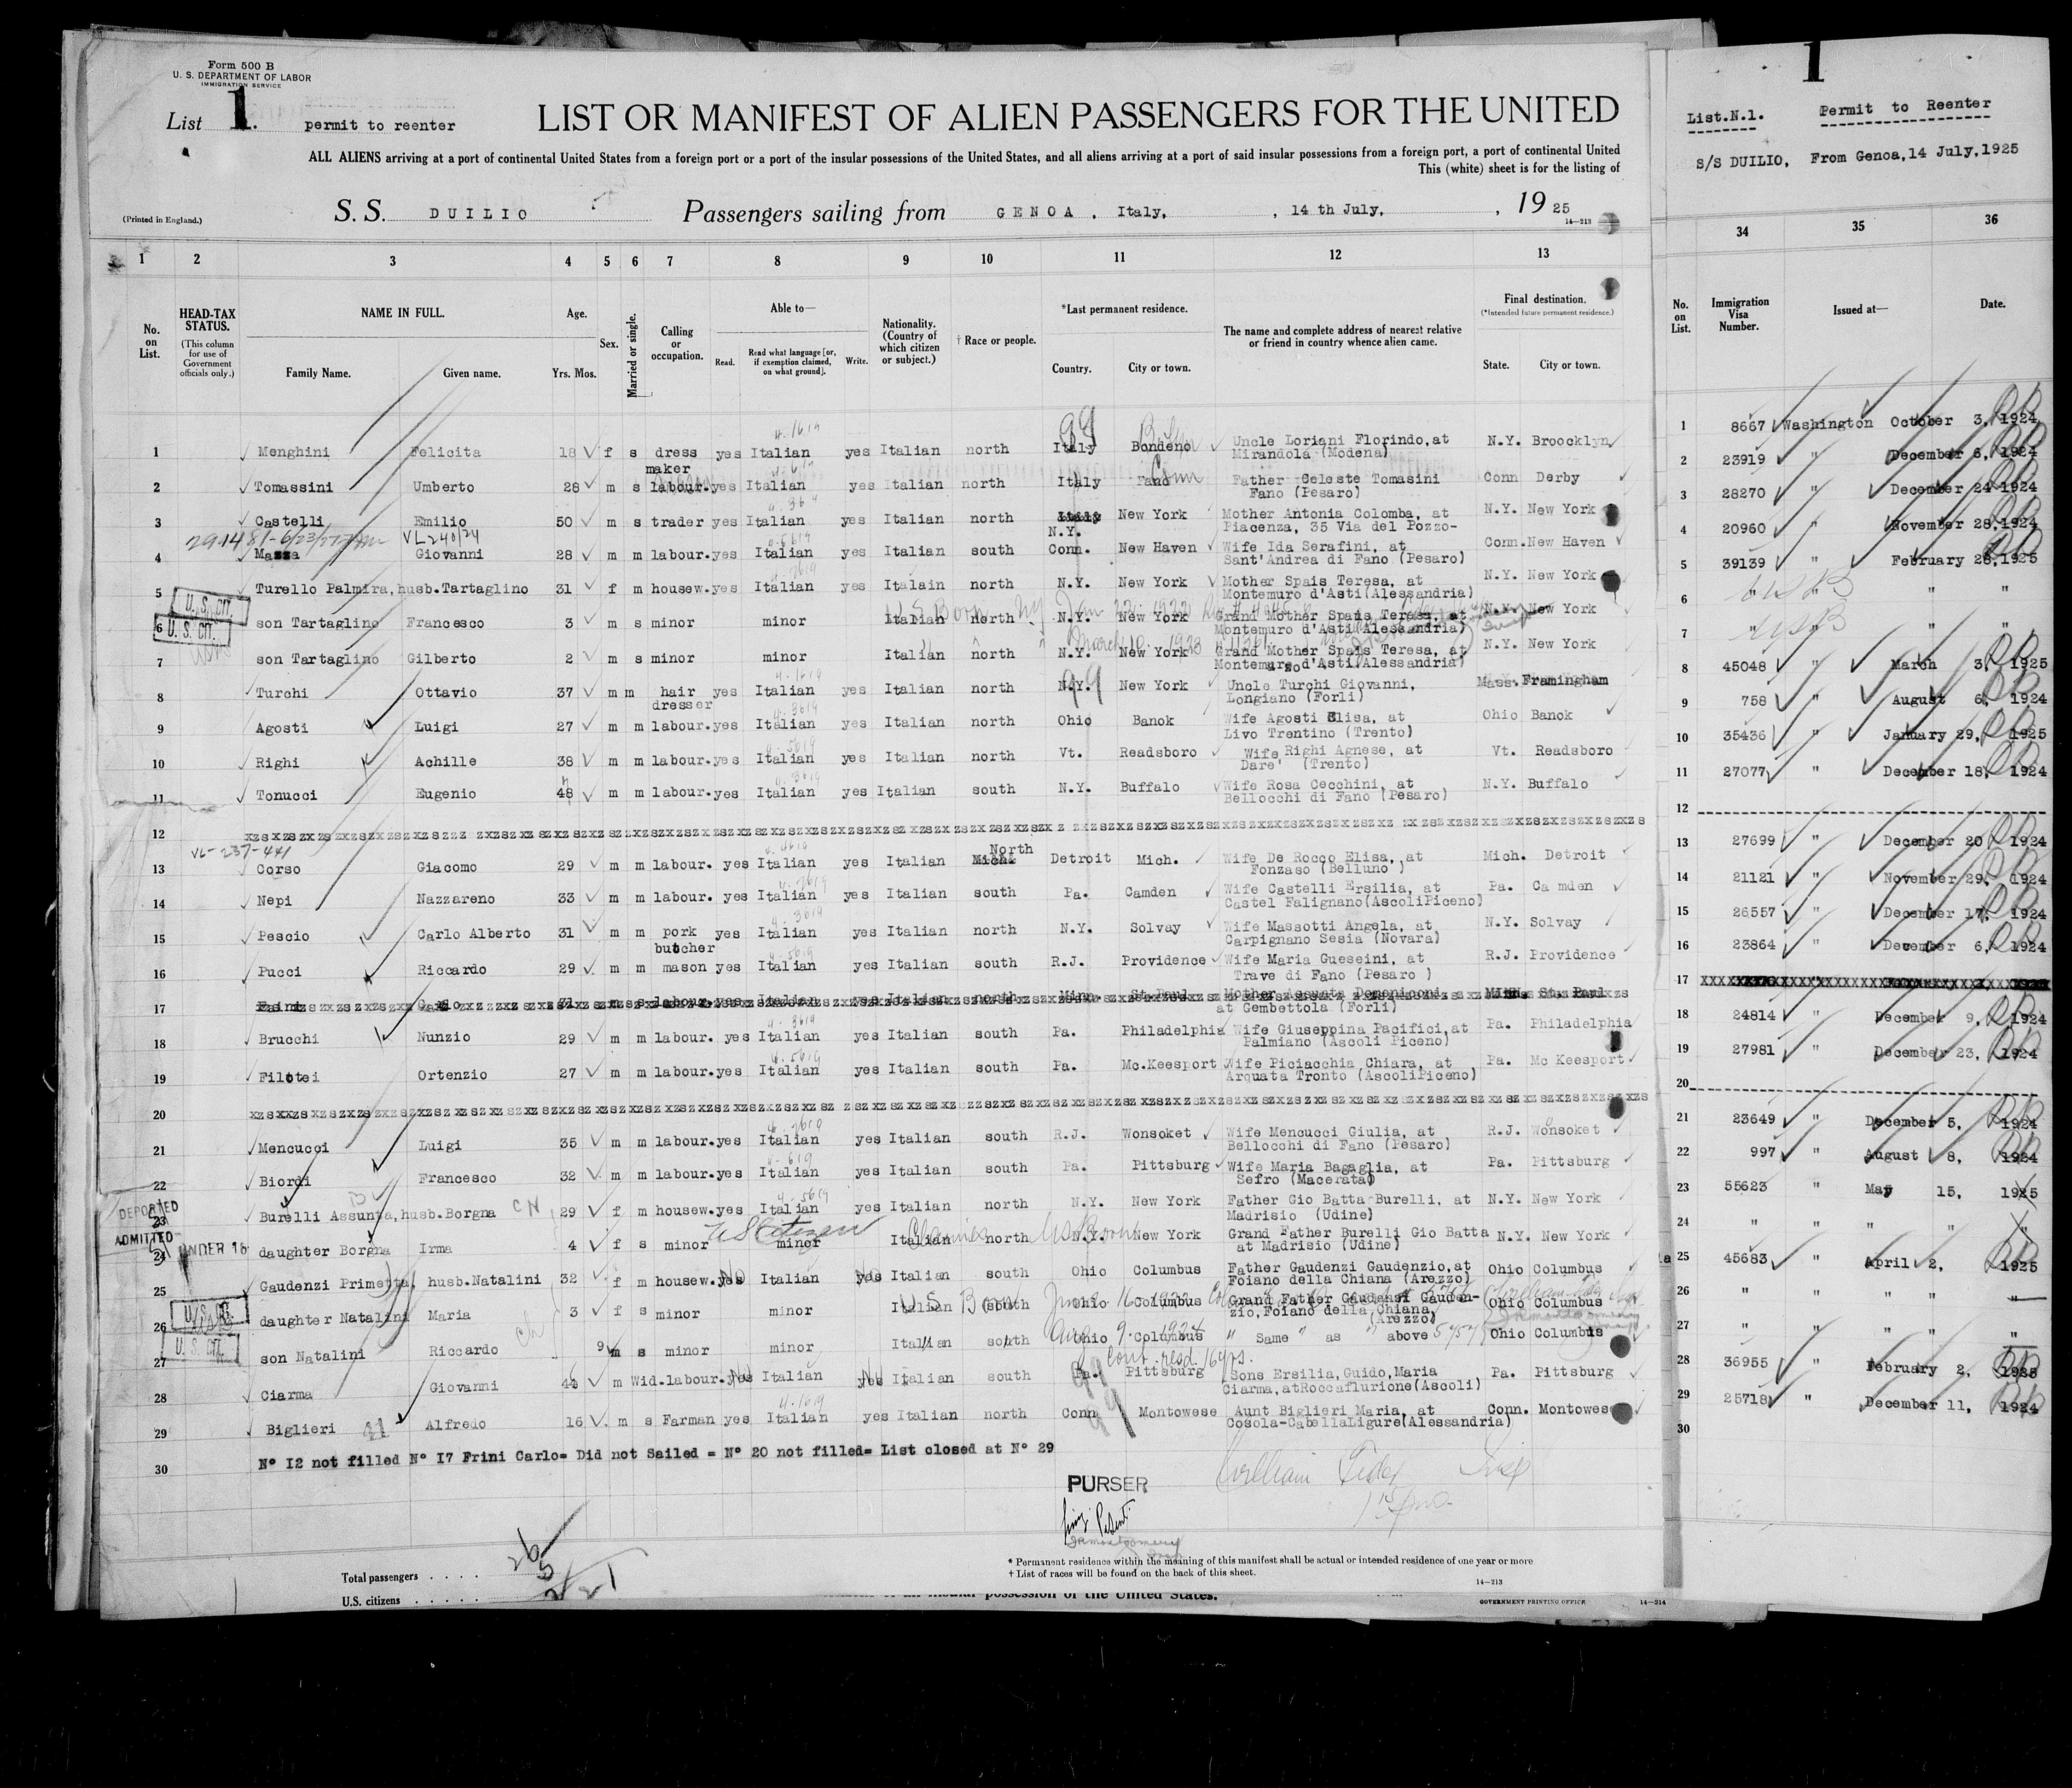 Form 500 B
U. S. DEPARTMENT OF LABOR
IMMIGRATION SERVICE
List 1. permit to reenter
LIST OR MANIFEST OF ALIEN PASSENGERS FOR THE UNITED
ALL ALIENS arriving at a port of continental United States from a foreign port or a port of the insular possessions of the United States, and all aliens arriving at a port of said insular possessions from a foreign port, a port of continental United
This (white) sheet is for the listing of
(Printed in England.)
S. S. DUILIO Passengers sailing from GENOA, Italy, , 14 th July, , 19 25
14—213
1 2 3 4 5 6 7 8 9 10 11 12 13
No. on List.
HEAD-TAX STATUS. (This column for use of Government officials only.)
NAME IN FULL. Family Name. Given name.
Age. Yrs. Mos.
Sex.
Married or single.
Calling or occupation.
Able to— Read. Read what language [or, if exemption claimed, on what ground]. Write.
Nationality. (Country of which citizen or subject.)
† Race or people.
*Last permanent residence. Country. City or town.
The name and complete address of nearest relative or friend in country whence alien came.
Final destination. (*Intended future permanent residence.) State. City or town.
1 Menghini Felicita 18 f s dress maker yes Italian yes Italian north Italy Bondeno Uncle Loriani Florindo, at Mirandola (Modena) N.Y. Broocklyn
2 Tomassini Umberto 28 m s labour. yes Italian yes Italian north Italy Fano Father Celeste Tomasini Fano (Pesaro) Conn Derby
3 Castelli Emilio 50 m s trader yes Italian yes Italian north Italy N.Y. New York Mother Antonia Colomba, at Piacenza, 35 Via del Pozzo- N.Y. New York
VL240124
4 Mazza Giovanni 28 m m labour. yes Italian yes Italian south Conn. New Haven Wife Ida Serafini, at Sant'Andrea di Fano (Pesaro) Conn. New Haven
5 Turello Palmira, husb. Tartaglino 31 f m housew. yes Italian yes Italain north N.Y. New York Mother Spais Teresa, at Montemuro d'Asti (Alessandria) N.Y. New York
U. S. CIT.
6 son Tartaglino Francesco 3 m s minor minor Italian north N.Y. New York Grand Mother Spais Teresa, at Montemuro d'Asti (Alessandria) N.Y. New York
U. S. CIT.
7 son Tartaglino Gilberto 2 m s minor minor Italian north N.Y. New York Grand Mother Spais Teresa, at Montemuro d'Asti (Alessandria) N.Y. New York
8 Turchi Ottavio 37 m m hair dresser yes Italian yes Italian north N.Y. New York Uncle Turchi Giovanni, Longiano (Forli) Mass. Framingham
9 Agosti Luigi 27 m m labour. yes Italian yes Italian north Ohio Banok Wife Agosti Elisa, at Livo Trentino (Trento) Ohio Banok
10 Righi Achille 38 m m labour. yes Italian yes Italian north Vt. Readsboro Wife Righi Agnese, at Dare' (Trento) Vt. Readsboro
11 Tonucci Eugenio 48 m m labour. yes Italian yes Italian south N.Y. Buffalo Wife Rosa Cecchini, at Bellocchi di Fano (Pesaro) N.Y. Buffalo
12
VL-237-441
13 Corso Giacomo 29 m m labour. yes Italian yes Italian North Detroit Mich. Wife De Rocco Elisa, at Fonzaso (Belluno) Mich. Detroit
14 Nepi Nazzareno 33 m m labour. yes Italian yes Italian south Pa. Camden Wife Castelli Ersilia, at Castel Falignano (AscoliPiceno) Pa. Ca mden
15 Pescio Carlo Alberto 31 m m pork butcher yes Italian yes Italian north N.Y. Solvay Wife Massotti Angela, at Carpignano Sesia (Novara) N.Y. Solvay
16 Pucci Riccardo 29 m m mason yes Italian yes Italian south R.J. Providence Wife Maria Gueseini, at Trave di Fano (Pesaro ) R.J. Providence
17 Carlo 31 m s labour. yes Italian yes Italian north Minn. St. Paul Mother Assunta Domeniconi at Gembettola (Forli) St. Paul
18 Brucchi Nunzio 29 m m labour. yes Italian yes Italian south Pa. Philadelphia Wife Giuseppina Pacifici, at Palmiano (Ascoli Piceno) Pa. Philadelphia
19 Filotei Ortenzio 27 m m labour. yes Italian yes Italian south Pa. Mc.Keesport Wife Piciacchia Chiara, at Arquata Tronto (AscoliPiceno) Pa. Mc Keesport
20
21 Mencucci Luigi 35 m m labour. yes Italian yes Italian south R.J. Wonsoket Wife Mencucci Giulia, at Bellocchi di Fano (Pesaro) R.J. Wonsoket
22 Biordi Francesco 32 m m labour. yes Italian yes Italian south Pa. Pittsburg Wife Maria Bagaglia, at Sefro (Macerata) Pa. Pittsburg
DEPORTED
23 Burelli Assunta, husb. Borgna 29 f m housew. yes Italian yes Italian north N.Y. New York Father Gio Batta Burelli, at Madrisio (Udine) N.Y. New York
ADMITTED
UNDER 16
24 daughter Borgna Irma 4 f s minor minor Italian north N.Y. New York Grand Father Burelli Gio Batta at Madrisio (Udine) N.Y. New York
US Citizen Claims US Born
25 Gaudenzi Primetta, husb. Natalini 32 f m housew. yes No Italian yes No Italian south Ohio Columbus Father Gaudenzi Gaudenzio, at Foiano della Chiana (Arezzo) Ohio Columbus
U. S. CIT.
26 daughter Natalini Maria 3 f s minor minor Italian south Ohio Columbus Grand Father Gaudenzi Gaudenzio, Foiano della Chiana (Arezzo) Ohio Columbus
U. S. CIT.
27 son Natalini Riccardo 9 m s minor minor Italian south Ohio Columbus " Same " as " above Ohio Columbus
Cont. resd. 16 yrs.
28 Ciarma Giovanni 44 m Wid. labour. yes No Italian yes No Italian south Pa. Pittsburg Sons Ersilia, Guido, Maria Ciarma, atRoccaflurione (Ascoli) Pa. Pittsburg
29 Biglieri Alfredo 16 m s Farman yes Italian yes Italian north Conn Montowese Aunt Biglieri Maria, at Cosola-CabellaLigure (Alessandria) Conn. Montowese
30 N° I2 not filled N° I7 Frini Carlo= Did not Sailed = N° 20 not filled= List closed at N° 29
PURSER
Total passengers . . . . 26
U.S. citizens . . . . .
* Permanent residence within the meaning of this manifest shall be actual or intended residence of one year or more
† List of races will be found on the back of this sheet.
14—213
an insular possession of the United States.
GOVERNMENT PRINTING OFFICE 14—214
1
List.N.1. Permit to Reenter
S/S DUILIO, From Genoa, 14 July, 1925
34 35 36
No. on List. Immigration Visa Number. Issued at— Date.
1 8667 Washington October 3, 1924
2 23919 " December 6, 1924
3 28270 " December 24 1924
4 20960 " November 28, 1924
5 39139 " February 28, 1925
6 " " " " USB
7 " " " " USB
8 45048 " March 3, 1925
9 758 " August 6, 1924
10 35436 " January 29, 1925
11 27077 " December 18, 1924
12
13 27699 " December 20 1924
14 21121 " November 29, 1924
15 26557 " December 17, 1924
16 23864 " December 6, 1924
17
18 24814 " December 9, 1924
19 27981 " December 23, 1924
20
21 23649 " December 5, 1924
22 997 " August 8, 1924
23 55623 " May 15, 1925
24 " " " " "
25 45683 " April 2, 1925
26 " " " " "
27 " " " " "
28 36955 " February 2, 1925
29 25718 " December 11, 1924
30